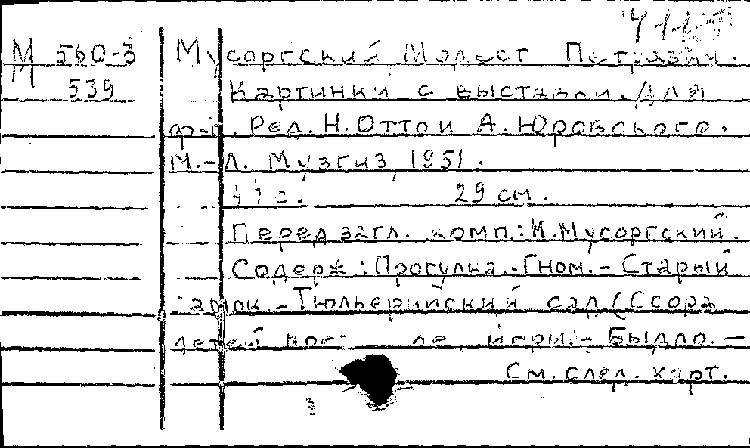 М 560-3 Мусоргский Модест Петрович.
539 Картинки с выставки. Для
ф-п. Ред. Н. Оттои А. Юровского.
М.-Л. Музгиз, 1951.
29 см.
Перед загл. комп.: М. Мусоргский.
Содерж: Прогулка.-Гном.-Старый
замок.-Тюльерийский сад (Ссора
детей после игры).-Быдло.-
См. след. карт.